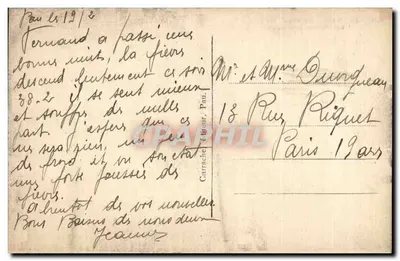 Pau le 19/2
Fernand a passé une
bonne nuit, la fièvre
descend lentement ce soir
38.2 il se sent mieux
et souffre de nulle
part. J'espère que ce
ne sera rien, un peu
de froid et
une forte poussée de
fièvre.
A bientot de vos nouvelles
Bons Baisers de nous deux
Jeanne
Mr et Mme
13 Rue Riquet
Paris 19
Carrache, Editeur, Pau.
CPAPHIL